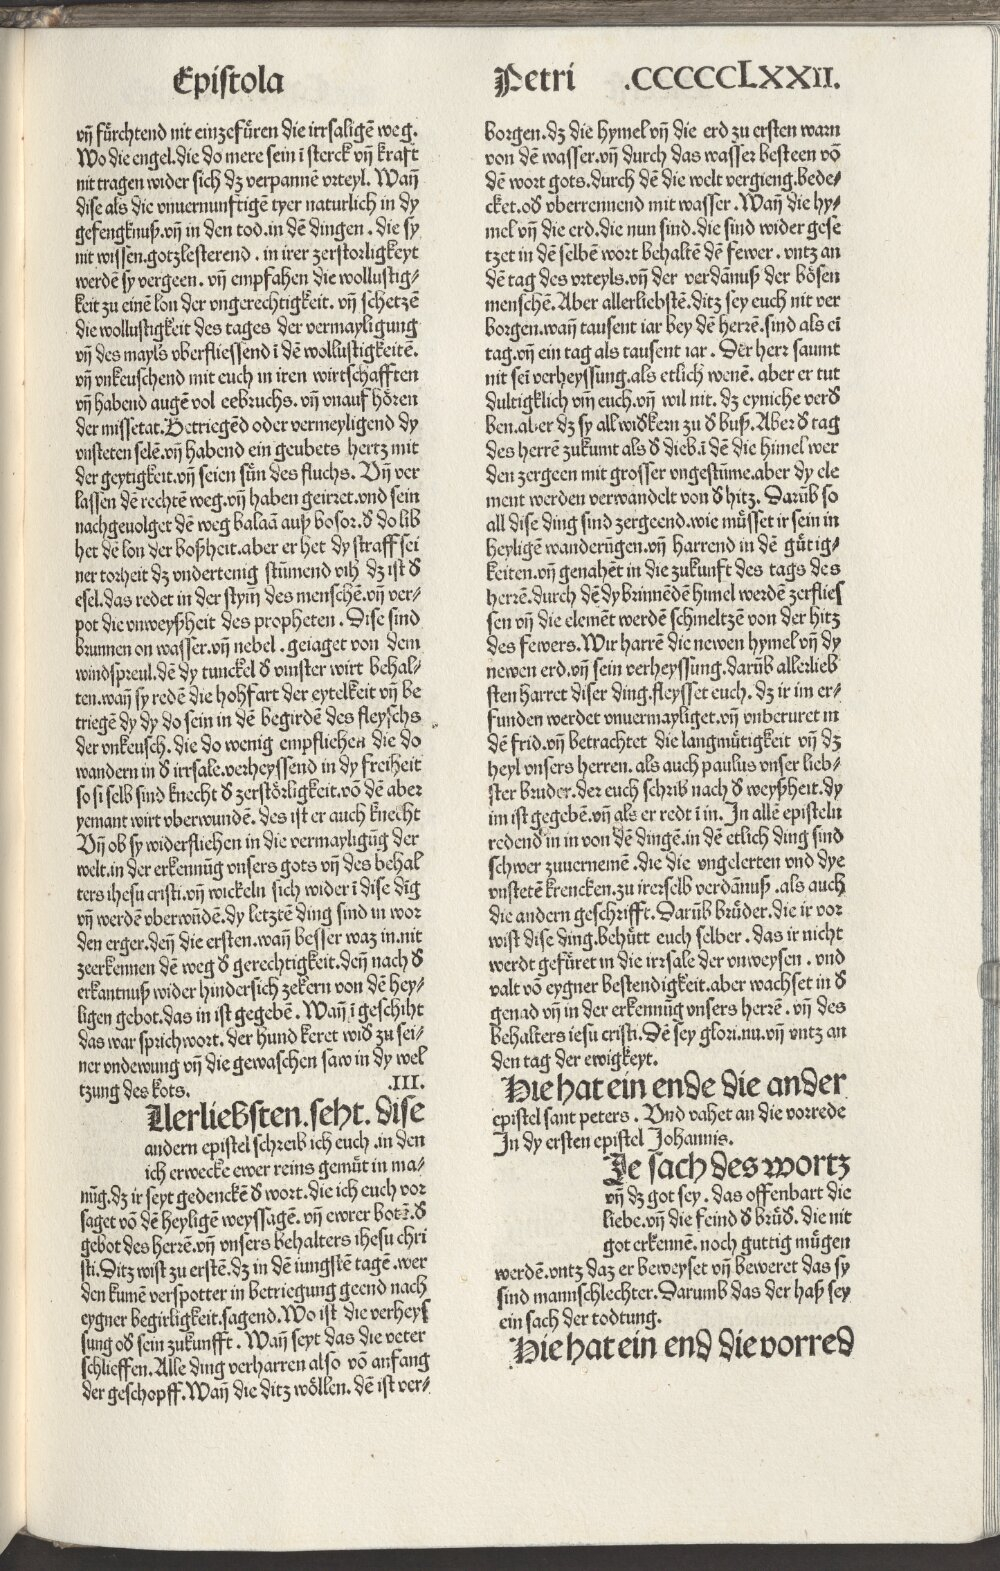 Epistola
Petri .CCCCCLXXII.
vñ fürchtend nit einzefüren die irrsaligē weg.
Wo die engel.die do mere sein ī sterck vñ kraft
nit tragen wider sich dz verpannē vrteyl. Wañ
dise als die vnuernunftigē tyer naturlich in dy
gefengknuß.vñ in den tod.in dē dingen . die sy
nit wissen.gotzlesterend . in irer zerstorligkeyt
werdē sy vergeen. vñ empfahen die wollustig⸗
keit zu einē lon der vngerechtigkeit. vñ schetzē
die wollustigkeit des tages der vermayligung
vñ des mayls vberfliessend ī dē wollustigkeitē.
vñ vnkeuschend mit euch in iren wirtschafften
vñ habend augē vol eebruchs. vñ vnauf hören
der missetat.Betriegēd oder vermeyligend dy
vnsteten selē.vñ habend ein geubets hertz mit
der geytigkeit.vñ seien sün des fluchs. Vñ ver
lassen dē rechtē weg.vñ haben geirret.vnd sein
nachgeuolget dē weg balaā auß bosor.đ do lib
het dē lon der boßheit.aber er het dy straff sei
ner torheit dz vndertenig stūmend vih dz ist đ
esel.das redet in der stym̄ des menschē.vñ ver⸗
pot die vnweyßheit des propheten . Dise sind
brunnen on wasser.vñ nebel . geiaget von dem
windspreul.dē dy tunckel đ vinster wirt behal⸗
ten.wañ sy redē die hohfart der eytelkeit vñ be
triegē dy dy do sein in dē begirdē des fleyschs
der vnkeusch. die do wenig empfliehen die do
wandern in đ irrsale.verheyssend in dy freiheit
so si selb sind knecht đ zerstörligkeit.vō dē aber
yemant wirt vberwundē. des ist er auch knecht
Vñ ob sy widerfliehen in die vermayligūg der
welt.in der erkennūg vnsers gots vñ des behal
ters ihesu cristi.vñ wickeln sich wider ī dise dīg
vñ werdē vberwūdē.dy letztē ding sind in wor
den erger.deñ die ersten.wañ besser waz in.nit
zeerkennen dē weg đ gerechtigkeit.deñ nach đ
erkantnuß wider hindersich zekern von dē hey⸗
ligen gebot.das in ist gegebē . Wañ ī geschiht
das war sprichwort. der hund keret wiđ zu sei⸗
ner vndewung vñ die gewaschen saw in dy wel
tzung des kots. .III.
Allerliebsten.seht. dise
andern epistel schreib ich euch .in den
ich erwecke ewer reins gemüt in ma⸗
nūg.dz ir seyt gedenckē đ wort.die ich euch vor
saget vō dē heyligē weyssagē. vñ ewrer botē.đ
gebot des herrē.vñ vnsers behalters ihesu chri
sti.Ditz wist zu erstē.dz in dē iungstē tagē.wer
den kumē verspotter in betriegung geend nach
eygner begirligkeit.sagend.Wo ist die verheys
sung ođ sein zukunfft . Wañ seyt das die veter
schlieffen.Alle ding verharren also vō anfang
der geschopff.Wañ die ditz wöllen. dē ist ver⸗
borgen.dz die hymel vñ die erd zu ersten warn
von dē wasser.vñ durch das wasser besteen vō
dē wort gots.durch dē die welt vergieng.bede⸗
cket.ođ vberrennend mit wasser .Wañ die hy⸗
mel vñ die erd.die nun sind.die sind wider gese
tzet in dē selbē wort behaltē dē fewer. vntz an
dē tag des vrteyls.vñ der verdānuß der bösen
menschē. Aber allerliebstē.ditz sey euch nit ver
borgen.wañ tausent iar bey dē herrē.sind als eī
tag.vñ ein tag als tausent iar . Der herr saumt
nit seī verheyssung.als etlich wenē. aber er tut
dultigklich vm̄ euch.vñ wil nit. dz eyniche verđ
ben.aber dz sy all wiđkern zu đ buß.Aber đ tag
des herrē zukumt als đ dieb.ī dē die himel wer
den zergeen mit grosser vngestūme.aber dy ele
ment werden verwandelt von đ hitz. Darūb so
all dise ding sind zergeend.wie müsset ir sein in
heyligē wanderūgen.vñ harrend in dē gütig⸗
keiten.vñ genahēt in die zukunft des tags des
herrē.durch dē dy brinnēdē himel werdē zerflies
sen vñ die elemēt werdē schmeltzē von der hitz
des fewers.Wir harrē die newen hymel vñ dy
newen erd.vñ sein verheyssūng.darūb allerlieb
sten harret diser ding.fleysset euch. dz ir im er⸗
funden werdet vnuermayliget.vñ vnberuret in
dē frid.vñ betrachtet die langmütigkeit vñ dz
heyl vnsers herren. als auch paulus vnser lieb⸗
ster bruder.der euch schrib nach đ weyßheit.dy
im ist gegebē.vñ als er redt ī in. In allē episteln
redend in in von dē dingē.in dē etlich ding sind
schwer zuuernemē .die die vngelerten vnd dye
vnstetē krencken.zu irerselb verdānuß .als auch
die andern geschrifft.Darūb brüder.die ir vor
wist dise ding.behütt euch selber . das ir nicht
werdt gefüret in die irrsale der vnweysen . vnd
valt vō eygner bestendigkeit.aber wachset in đ
genad vñ in der erkennūg vnsers herrē . vñ des
behalters iesu cristi.Dē sey glori.nu.vñ vntz an
den tag der ewigkeyt.
Hie hat ein ende die ander
epistel sant peters . Vnd vahet an die vorrede
In dy ersten epistel Johannis.
Die sach des wortz
vñ dz got sey . das offenbart die
liebe.vñ die feind đ brüđ. die nit
got erkennē. noch guttig mügen
werdē.vntz daz er beweyset vñ beweret das sy
sind mannschlechter.Darumb das der haß sey
ein sach der todtung.
Hie hat ein end die vorred